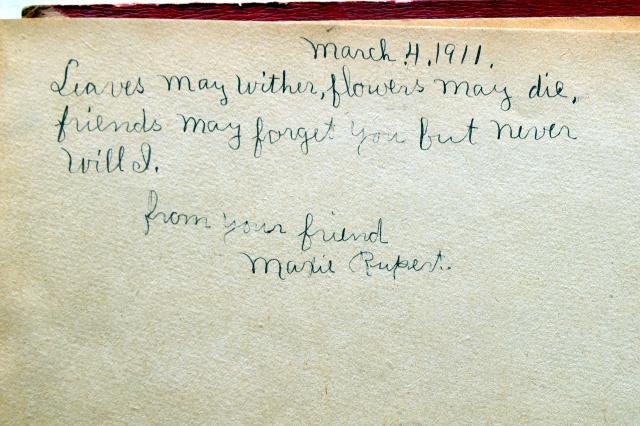 March 4, 1911.
Leaves may wither, flowers may die,
friends may forget you but never
will I.
from your friend
Maxie Rupert.